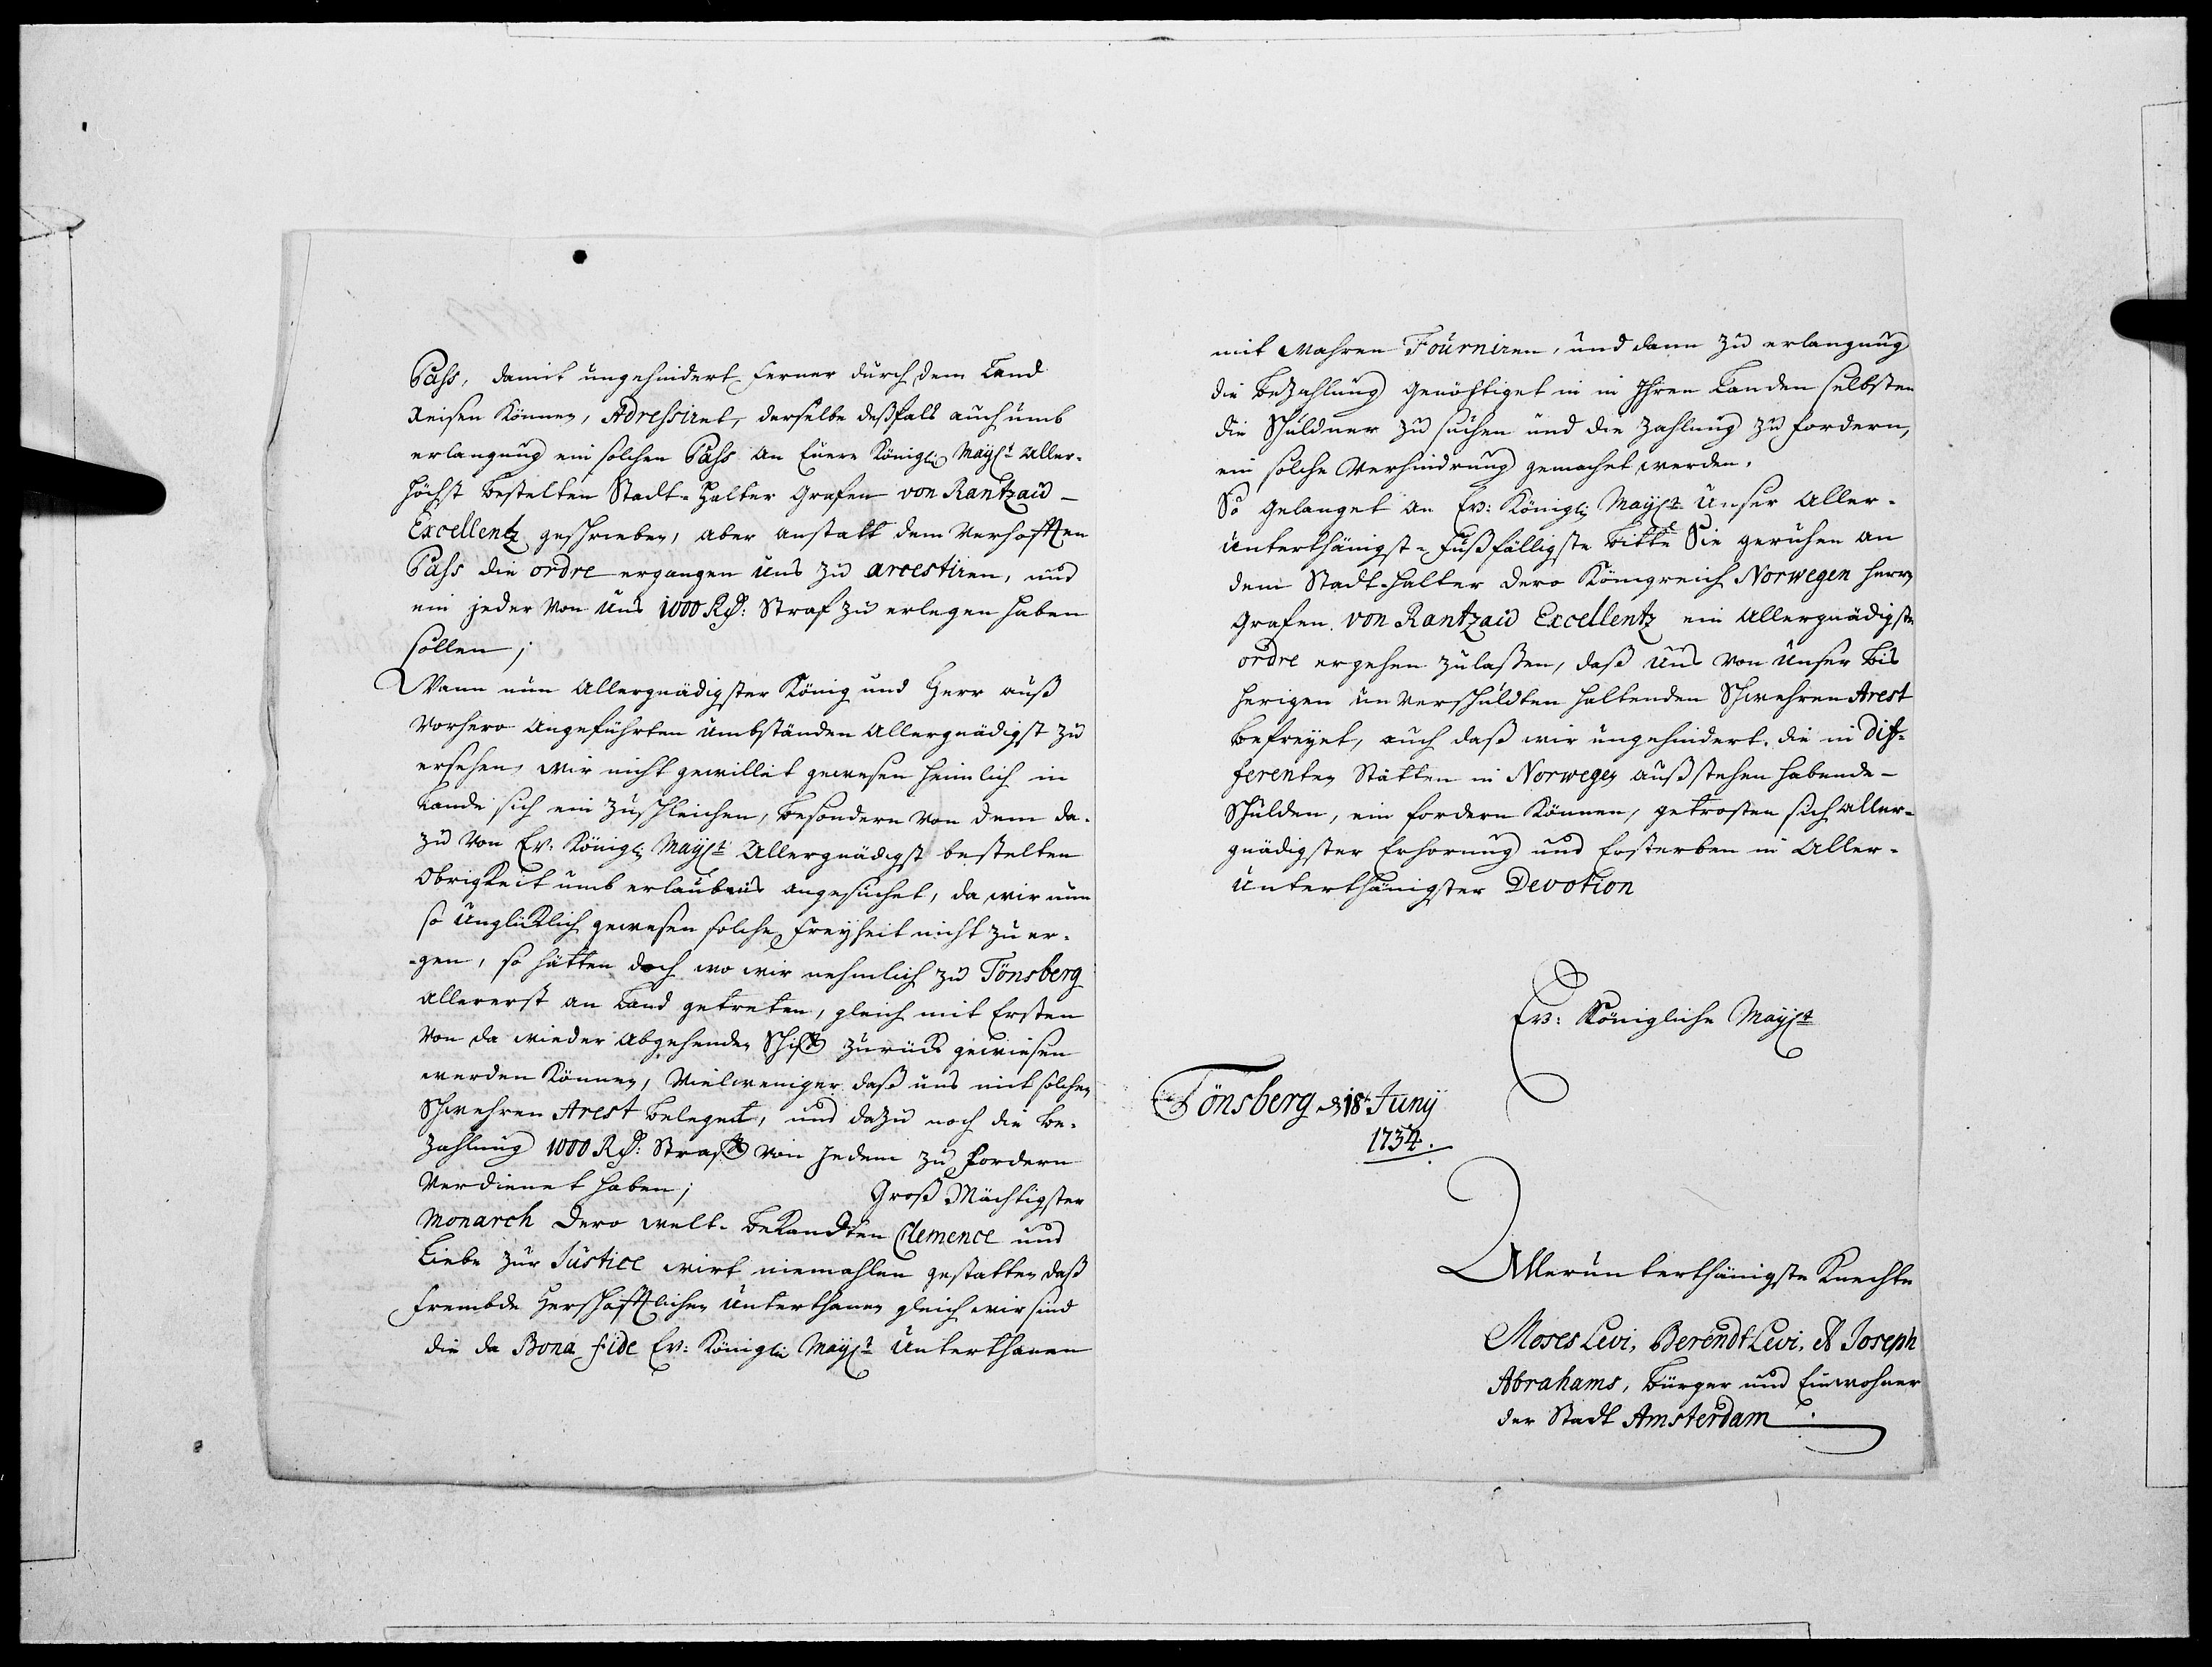 Pass, damit ungehindert ferner durch dem Land
Reisen können, Adressiret, derselbe deßfals auch umb
erlangung ein solchen Pass an Euere Königlie Mayst Aller-
höchst bestelten Stadt-Halter Grafen von Rantzau -
Excellentz geschrieben, aber anstatt dem Verhofften
Pass die ordre ergangen uns zu arrestiren, und
ein jeder von uns 1000 Rd: Straf zu erlegen haben
sollen;
Wann nun Allergnädigster König und Herr auß
vorhero angeführten Umbständen Allergnädigst zu
ersehen, wir nicht gewillet gewesen heimlich in
Lande sich ein zu schleichen, besondern von dem da-
zu von Ew: Königl: Mayst Allergnädigst bestelten
Obrigkeit umb erlaubnis angesuchet, da wir nun
so Unglücklich gewesen solche freyheit nicht zu er-
-gen, so hätten doch wo wir nehmlich zu Tönsberg
allererst an Land getreten, gleich mit Ersten
von da wieder abgehenden Schiff zurück gewiesen
werden können, Vielweniger daß uns mit solchen
Schwehren Arest beleget, und dazu noch die be-
zahlung 1000 Rd: Straff von Jedem zu fordern
Verdienet haben; Groß Mächtigster
Monarch Dero welt-bekandten Clemence und
Liebe zur Justice wirt niemahlen gestatten daß
frembde Herschafftlichen Unterthanen gleich wir sind
die da Bona fide Ew: Königlie Mayst Unterthanen
mit Wahren Fourniren, und dann zu erlangung
die bezahlung genöhtiget in in Ihren Landen selbsten
die Schuldner zu suchen und die Zahlung zu fordern,
ein solche Verhindrung gemachet werden.
So gelanget an Ew: Königl: Mayst Unser Aller-
unterthänigst-fußfälligste bitte Sie geruhen an
dem Stadt-halter dero Königreich Norwegen Herrn
Grafen von Rantzau Excellentz ein Allergnädigste
ordre ergehen zulaßen, daß uns von unser bis
herigen un verschuldten haltenden Schwehren Arest
befreyet, auch daß wir ungehindert die in dif-
ferenten Stätten in Norwegen außstehen habende -
Schulden, ein fordern können, getrosten sich aller-
gnädigster Erhorung und Ersterben in Aller-
unterthänigster Devotion
Ew: Königliche Mayst
Tönsberg d 18t Juny
1734.
Allerunterthänigste Knechte
Moses Levi, Berendt Levi, & Joseph
Abrahams, Bürger und Einwohner
der Stadt Amsterdam